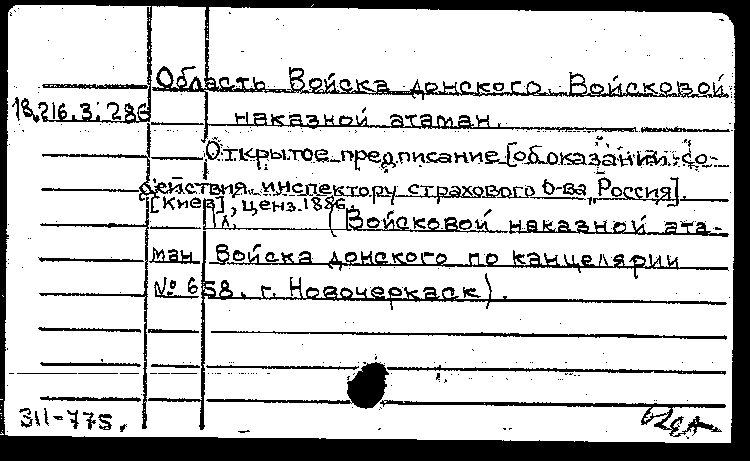 Область Войска донского. Войсковой
18.216.3.286
наказной атаман.
Открытое предписание [об оказании со-
действия инспектору страхового о-ва „Россия].
[Киев], ценз. 1886.
1 л. (Войсковой наказной ата-
ман Войска донского по канцелярии
№ 658. г. Новочеркаск).
311-775.